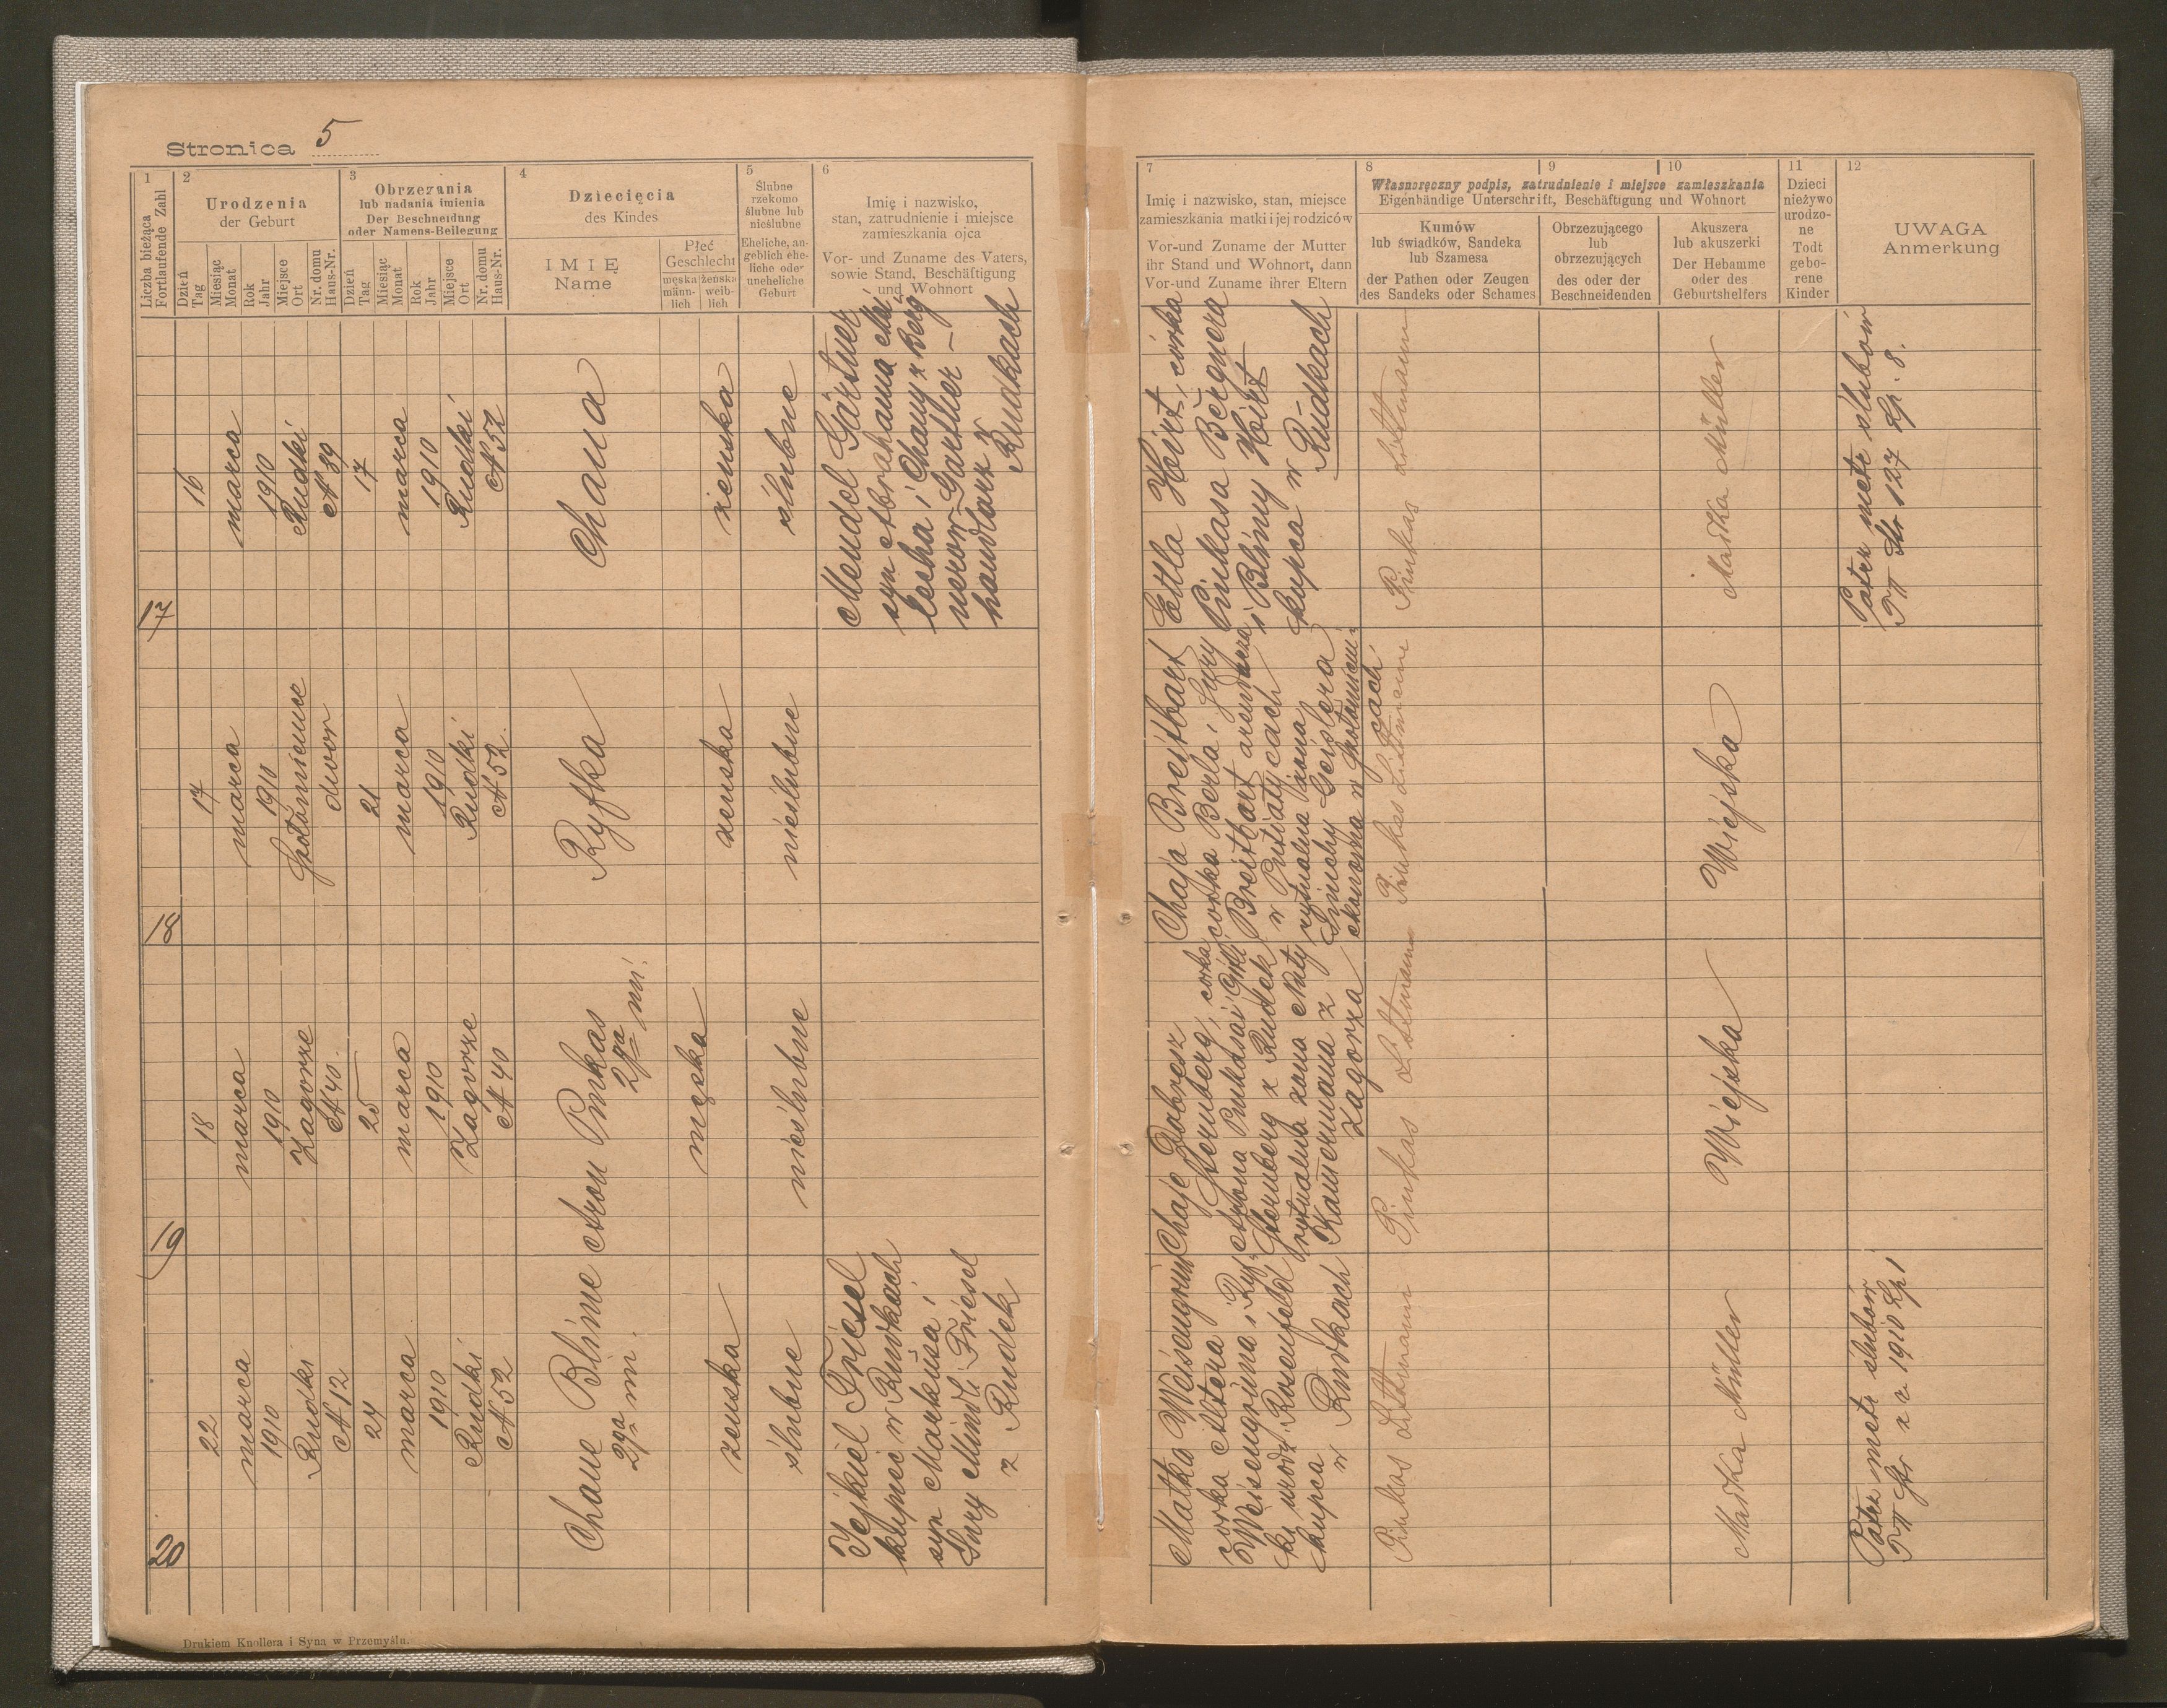 Stronica 5
1
Liczba bieżąca
Fortlaufende Zahl
2
Urodzenia
der Geburt
Dzień
Tag
Miesiąc
Monat
Rok
Jahr
Miejsce
Ort
Nr. domu
Haus-Nr.
3
Obrzezania
lub nadania imienia
Der Beschneidung
oder Namens-Beilegung
Dzień
Tag
Miesiąc
Monat
Rok
Jahr
Miejsce
Ort
Nr. domu
Haus-Nr.
4
Dziecięcia
des Kindes
IMIĘ
Name
Płeć
Geschlecht
męska
männ-
lich
żeńska
weib-
lich
5
Ślubne
rzekomo
ślubne lub
nieślubne
Eheliche, an-
geblich ehe-
liche oder
uneheliche
Geburt
6
Imię i nazwisko,
stan, zatrudnienie i miejsce
zamieszkania ojca
Vor- und Zuname des Vaters,
sowie Stand, Beschäftigung
und Wohnort
7
Imię i nazwisko, stan, miejsce
zamieszkania matki i jej rodziców
Vor-und Zuname der Mutter
ihr Stand und Wohnort, dann
Vor-und Zuname ihrer Eltern
8
9
10
Własnoręczny podpis, zatrudnienie i miejsce zamieszkania
Eigenhändige Unterschrift, Beschäftigung und Wohnort
Kumów
lub świadków, Sandeka
lub Szamesa
der Pathen oder Zeugen
des Sandeks oder Schames
Obrzezującego
lub
obrzezujących
des oder der
Beschneidenden
Akuszera
lub akuszerki
Der Hebamme
oder des
Geburtshelfers
11
Dzieci
nieżywo
urodzo-
ne
Todt
gebo-
rene
Kinder
12
UWAGA
Anmerkung
17
16
marca
1910
Rudki
N 39
17
marca
1910
Rudki
N 52
Chana
żeńska
ślubne
Mendel Gärtner
syn Abrahama
i Chany z Berg
handlarz w
Rudkach
Ettla Hirt, córka
Pinkasa Bergnera
i Blimy Hirt
kupca w
Rudkach
Pinkas Littmann
Maśka Müller
Patrz metr ślubów
T II Str 127 Lp. 8.
18
17
marca
1910
dwor
21
marca
1910
Rudki
N 52
Ryfka
żenska
nieślubne
Chaja Breitbart
córka Berla i
Breitbart
w
rytualna żona
Geislera
w
Pinkas Littmann
Wiejska
19
18
marca
1910
Zagorze
N 40
25
marca
1910
Zagorze
N 40
Aron Pinkas
2ga mi.
męska
nieślubne
Chaje
Sternberg, córka
Arona Pinkasa i
Sternberg z Rudek
rytualna żona
Kamermana z
Zagorza
Pinkas Littmann
Wiejska
20
22
marca
1910
Rudki
N 12
24
marca
1910
Rudki
N 52
Chane Blime
2ga mi.
żenska
ślubne
Jejkiel Friesel
kupiec w Rudkach
syn Markusa i
Sury Mindli Friesel
z Rudek
Małka Weisengrün
córka Altera
Weisengrüna i Ryf
ki urodz. Rosenfeld
kupca
w Rudkach
Pinkas Littmann
Maśka Müller
Patrz metr ślubów
T II Str a a 1910 Lp 1
Drukiem Knollera i Syna w Przemyślu.